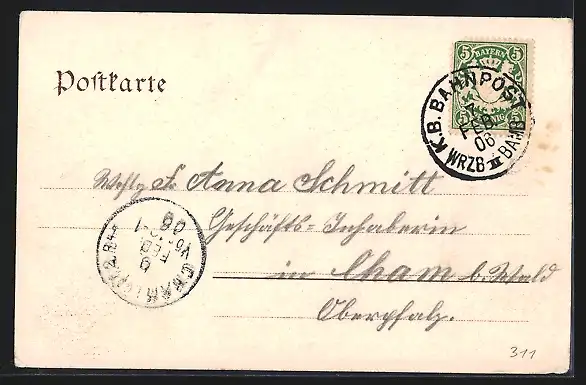 Postkarte
5 BAYERN 5
5 PFENNIG 5
K.B. BAHNPOST
FEB.
06
WRZB-II BAMB
Anna Schmitt
Geschäfts-Inhaberin
in Cham b. Wald
Oberpfalz.
CHAM
9
FEB
06
311